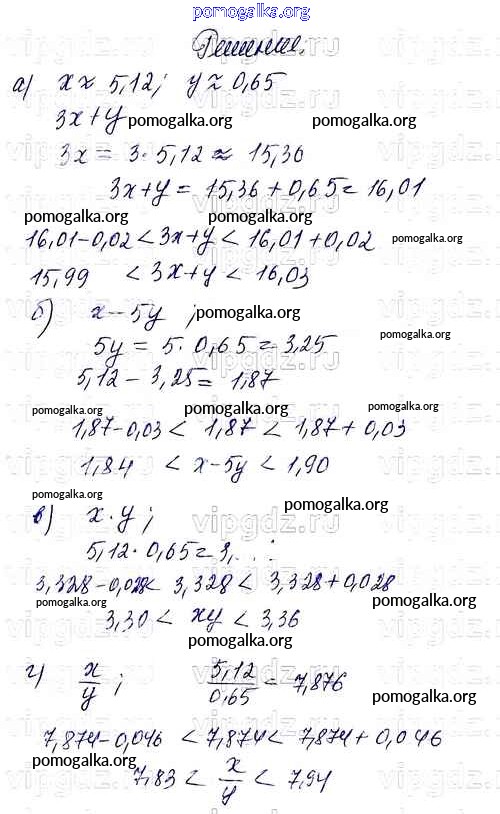 pomogalka.org
Решение.
а) x ≈ 5,12; y ≈ 0,65
3x+y
pomogalka.org pomogalka.org
3x = 3·5,12 ≈ 15,36
3x+y = 15,36+0,65=16,01
pomogalka.org pomogalka.org
16,01-0,02 < 3x+y < 16,01+0,02 pomogalka.org
15,99 < 3x+y < 16,03
б) x-5y;
pomogalka.org
5y = 5·0,65=3,25 pomogalka.org
5,12-3,25=1,87
pomogalka.org pomogalka.org pomogalka.org
1,87-0,03 < 1,87 < 1,87+0,03
1,84 < x-5y < 1,90
в) x·y; pomogalka.org
vipgdz.ru
5,12·0,65=3,...
3,328-0,028< 3,328 < 3,328+0,028
pomogalka.org pomogalka.org
3,30 < xy < 3,36
г) x/y; 5,12/0,65 = 7,876
pomogalka.org pomogalka.org
7,874-0,046 < 7,874 < 7,874+0,046
pomogalka.org pomogalka.org
7,83 < x/y < 7,94